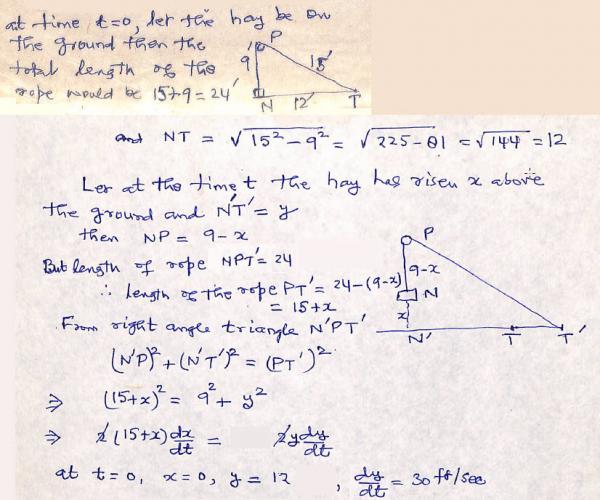 at time t=0, let the hay be on
the ground then the
total length of the
rope would be 15+9=24'
P
9'
15'
N 12' T
and NT = √15²-9² = √225-81 = √144 = 12
Let at the time t the hay has risen x above
the ground and N'T' = y
then NP = 9-x
But length of rope NPT' = 24
∴ length of the rope PT' = 24-(9-x)
= 15+x
From right angle triangle N'PT'
(N'P)² + (N'T')² = (PT')²
⇒ (15+x)² = 9² + y²
⇒ 2(15+x) dx/dt = 2y dy/dt
at t=0, x=0, y=12 , dy/dt = 30 ft/sec
P
9-x
N
x
N' T T'